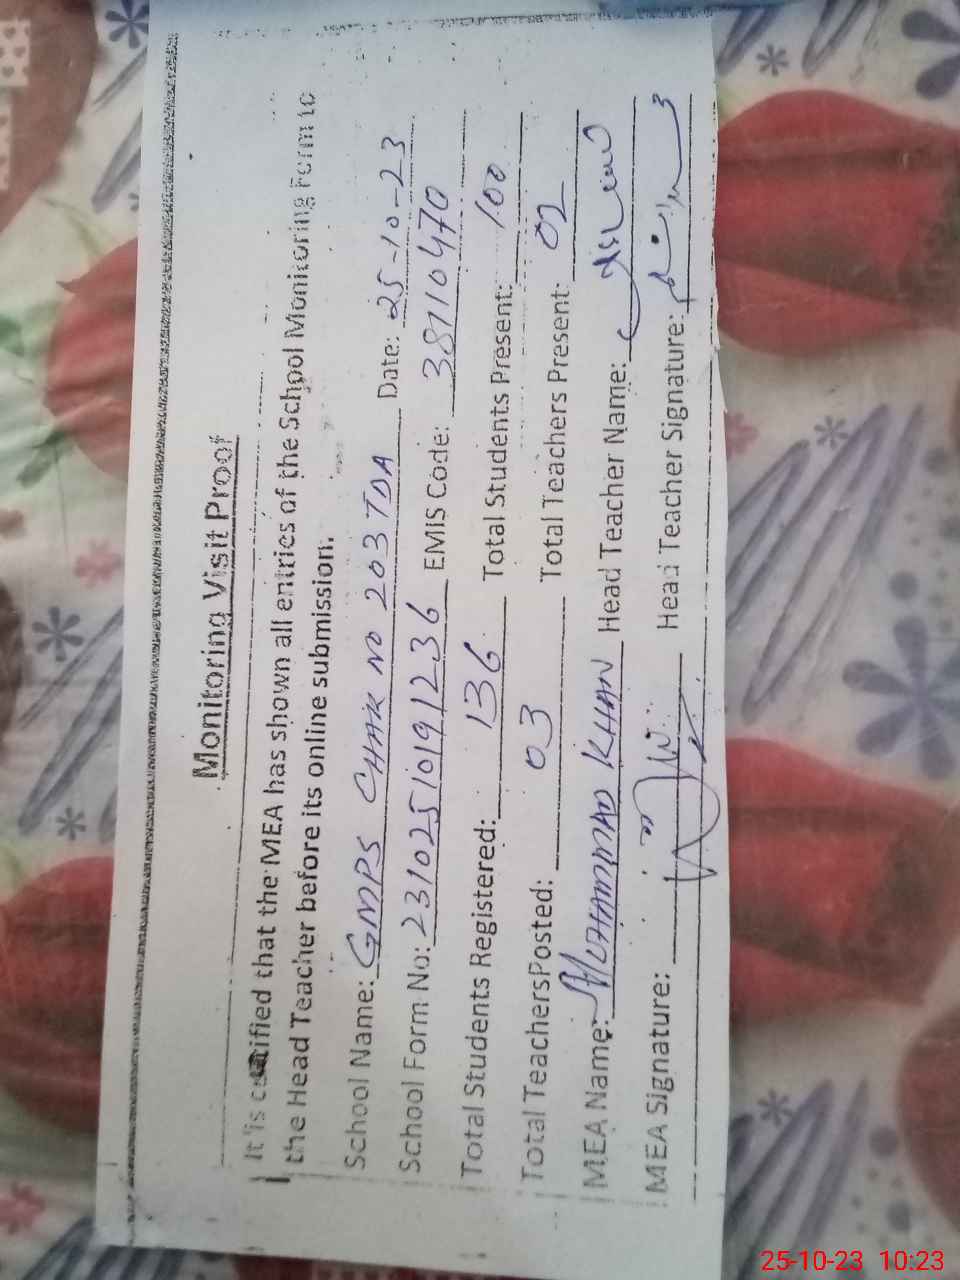 Monitoring Visit Proof
It is certified that the MEA has shown all entries of the School Monitoring Form to
the Head Teacher before its online submission.
School Name: GMPS CHAK NO 203 TDA Date: 25-10-23
School Form No: 23102510191236 EMIS Code: 38110470
Total Students Registered: 136 Total Students Present: 100
Total Teachers Posted: 03 Total Teachers Present: 02
MEA Name: MUHAMMAD KHAN Head Teacher Name:
MEA Signature: Head Teacher Signature:
25-10-23 10:23